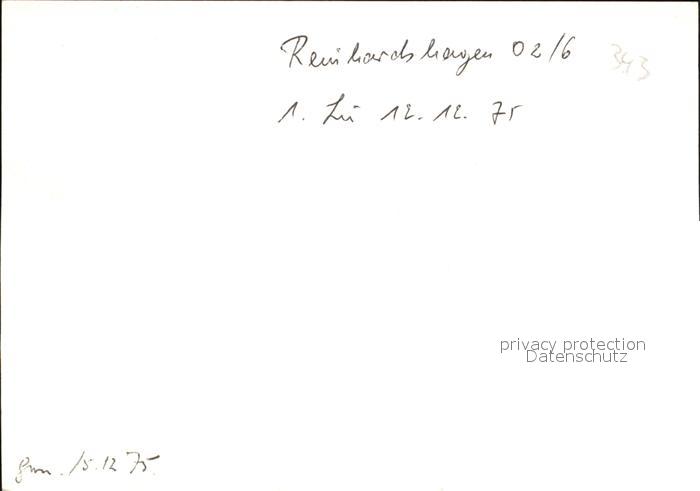 Reinhardshagen 02/6
343
1. Lü 12.12.75
privacy protection
Datenschutz
gen. 15.12 75.